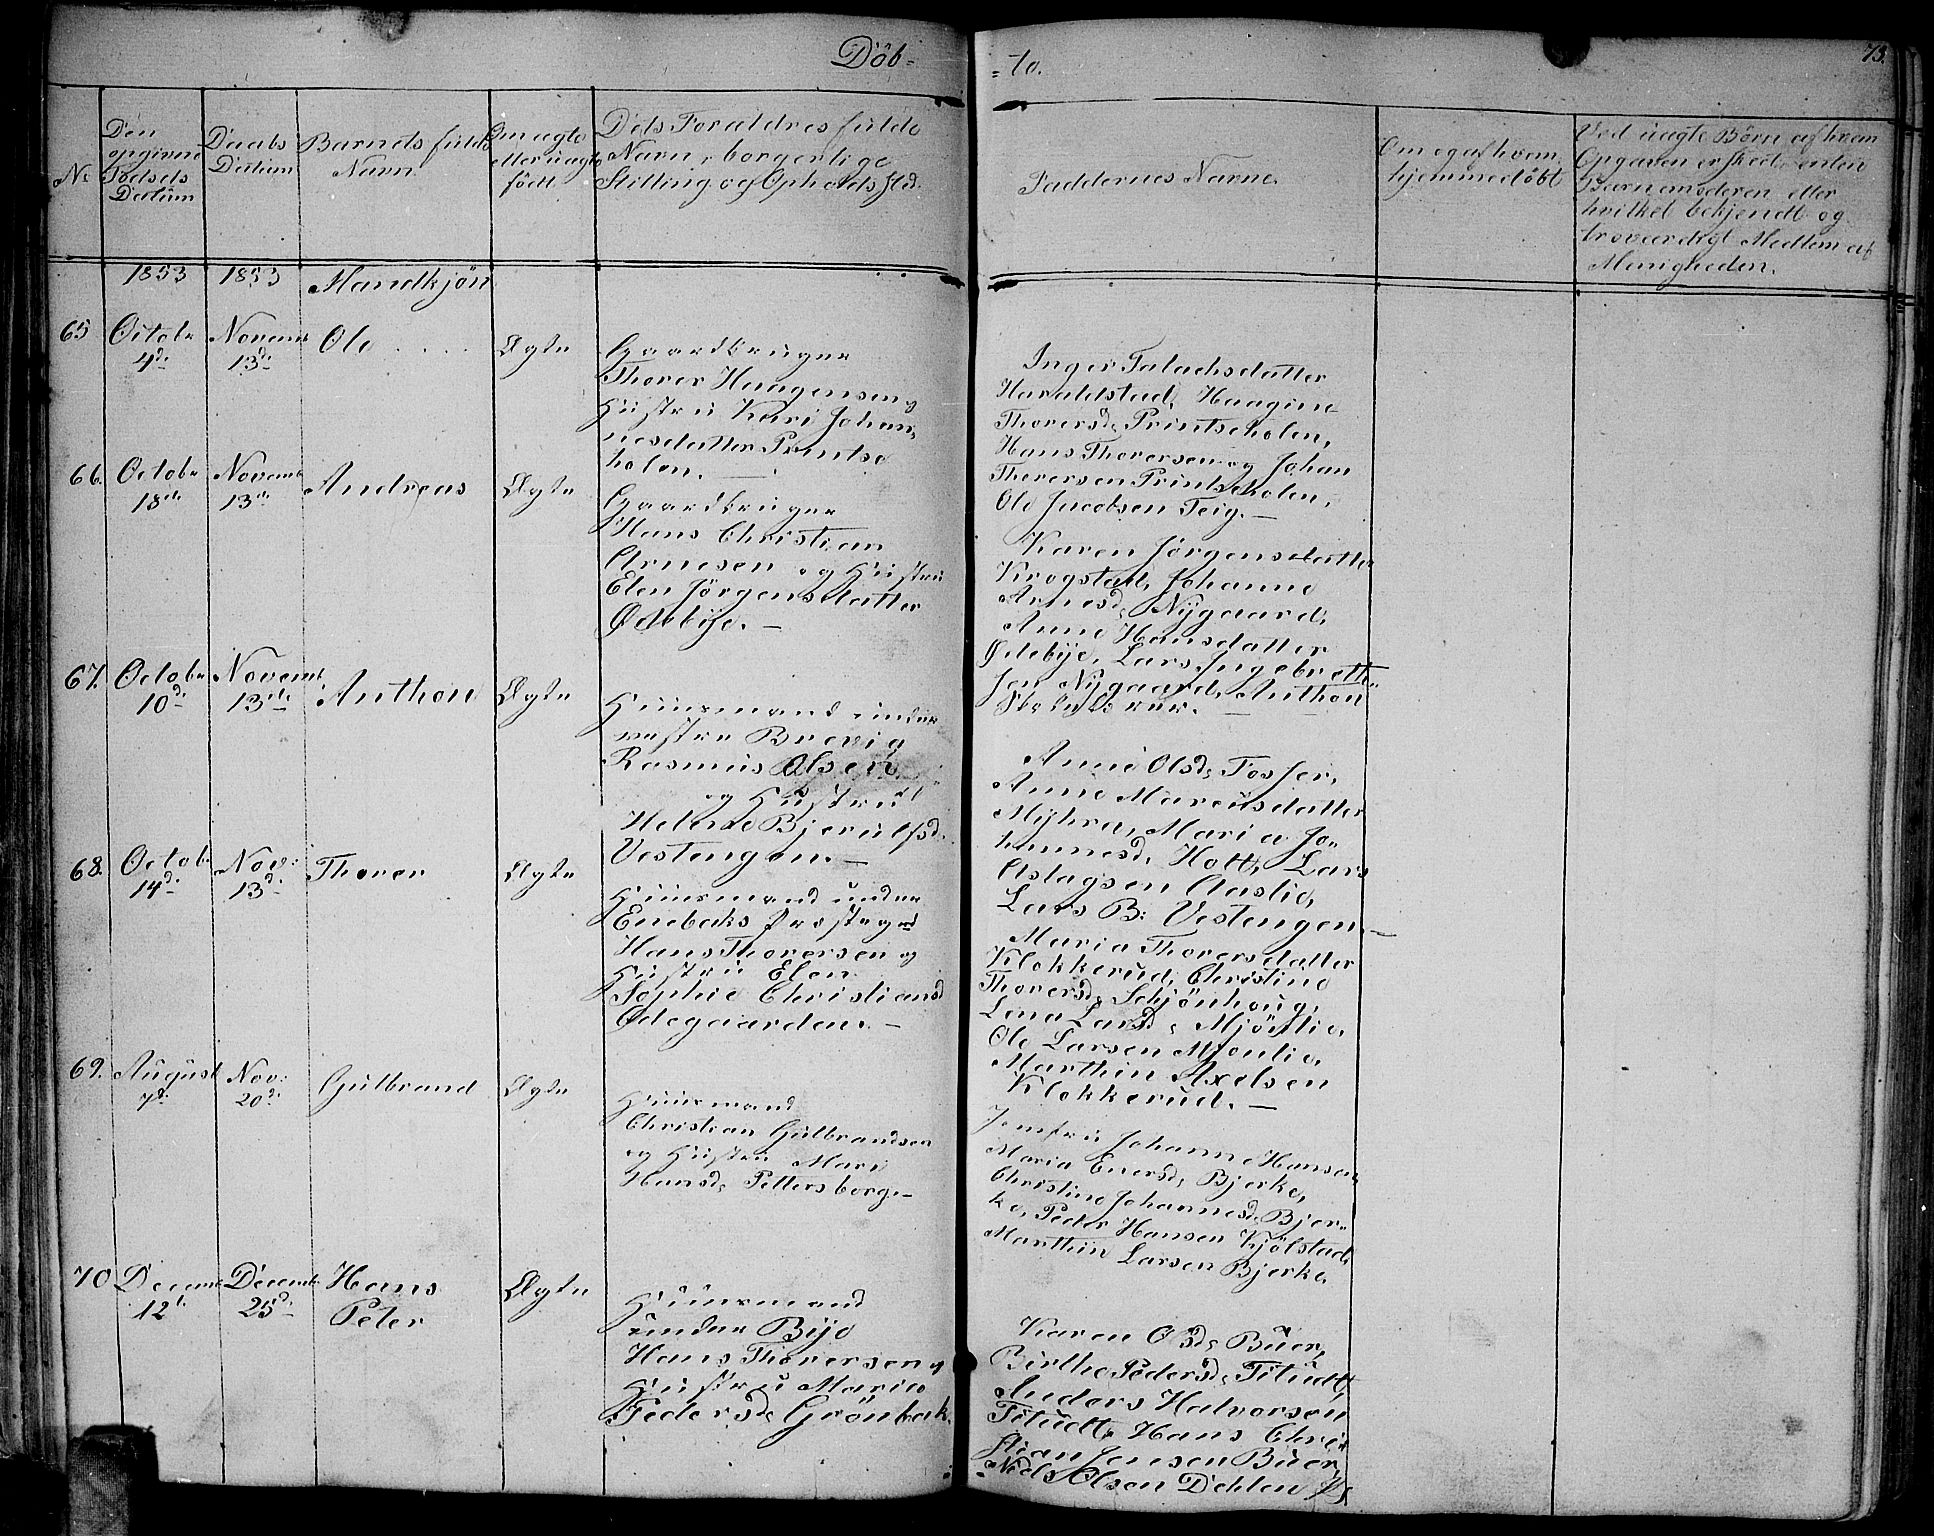 Döb-
-te.
73.
No
Den
opgivne
Födsels
Datum
Daabs
Datum
Barnets fulde
Navn
Om ægte
eller uægte
födt
Dets Foraldres fulde
Navn, borgerlige
Stilling og Opholdssted.
Faddernes Navne.
Om og af hvem
hjemmedöbt
Ved uægte Börn af hvem
Opgaven er skeet, enten
Barnemoderen eller
hvilket bekjendt og
troværdigt Medlem af
Menigheden.
1853
1853
Mandkjön
65
Octobr
4d
Novemb
13d
Ole
Ægte
Gaardbruger
Thorer Haagensen og
Hustru Kari Johan-
nesdatter Printse-
holen.
Inger Falachsdatter
Haraldstad, Haagine
Thorersd. Printseholen,
Hans Thorersen og Johan
Thorersen Printseholen,
Ole Jacobsen Teig. —
66.
Octobr
18de
Novemb
13de
Andreas
Ægte
Gaardbruger
Hans Christian
Arnesen og Hustru
Elen Jörgensdatter
Ødebye. —
Karen Jörgensdatter
Krogstad, Johanne
Arnesd. Nygaard,
Anne Hansdatter
Ødebye, Lars Ingebrett-
sen Nygaard, Anthon
67.
Octobr
10d
Novemb
13de
Anthon
Ægte
Huusmand under
vestre Brevig
Rasmus Olsen
og Hustru
Helene Bjerulfsd.
Vestengen. —
Anne Olsd. Fosser,
Anne Marcusdatter
Myhra, Maria Jo-
hannesd. Hott, Lars
Aslagsen Aaslie,
Lars B: Vestengen. —
68.
Octob
14d
Nov:
13d
Thorer
Ægte
Huusmand under
Enebaks Præstegd
Hans Thorersen og
Hustru Elen
Sophie Christiansd
Ødegaarden. —
Maria Thorersdatter
Klokkerud, Christine
Thorersd. Schjönhoug,
Lena Larsd. Mjönlie,
Ole Larsen Mjönlie,
Marthin Axelsen
Klokkerud. —
69.
August
7d
Nov:
20d
Gulbrand
Ægte
Huusmand
Christian Gulbrandsen
og Hustru Mari
Hansd. Pettersborg. —
Jomfru Johanne Hansen,
Maria Enersd. Bjerke,
Christine Johannesd. Bjer-
ke, Peder Hansen Kjölstad,
Marthin Larsen Bjerke,
70
Decemb
12t
Decemb
25d
Hans
Peter
Ægte
Huusmand
under Bye
Hans Thorersen og
Hustru Marie
Pedersd. Grönbak.
Karen Olsd. Buer,
Birthe Pedersd. Titudt,
Anders Halvorsen
Titudt, Hans Chri-
stian Jensen Buer,
Niels Olsen Dehlen